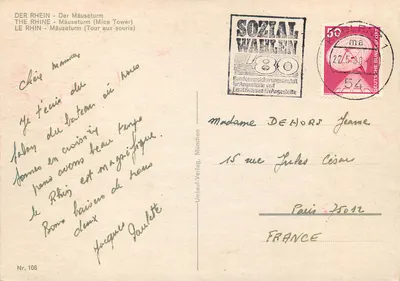 DER RHEIN - Der Mäuseturm
THE RHINE - Mäuseturm (Mice Tower)
LE RHIN - Mäuseturm (Tour aux souris)
Chère maman,
Je t'écris du
salon du bateau où nous
sommes en croisière
nous avons beau temps
le Rhin est magnifique.
Bons baisers de nous
deux
Jacques
Paulette
Nr. 105
Umlauf-Verlag, München
SOZIAL
WAHLEN
80
Bundesversicherungsanstalt
für Angestellte und
Ersatzkassen für Angestellte
50
DEUTSCHE BUNDESPOST
1
ma
54
Madame DEHORS Jeanne
15 rue Jules César
Paris 75012
FRANCE